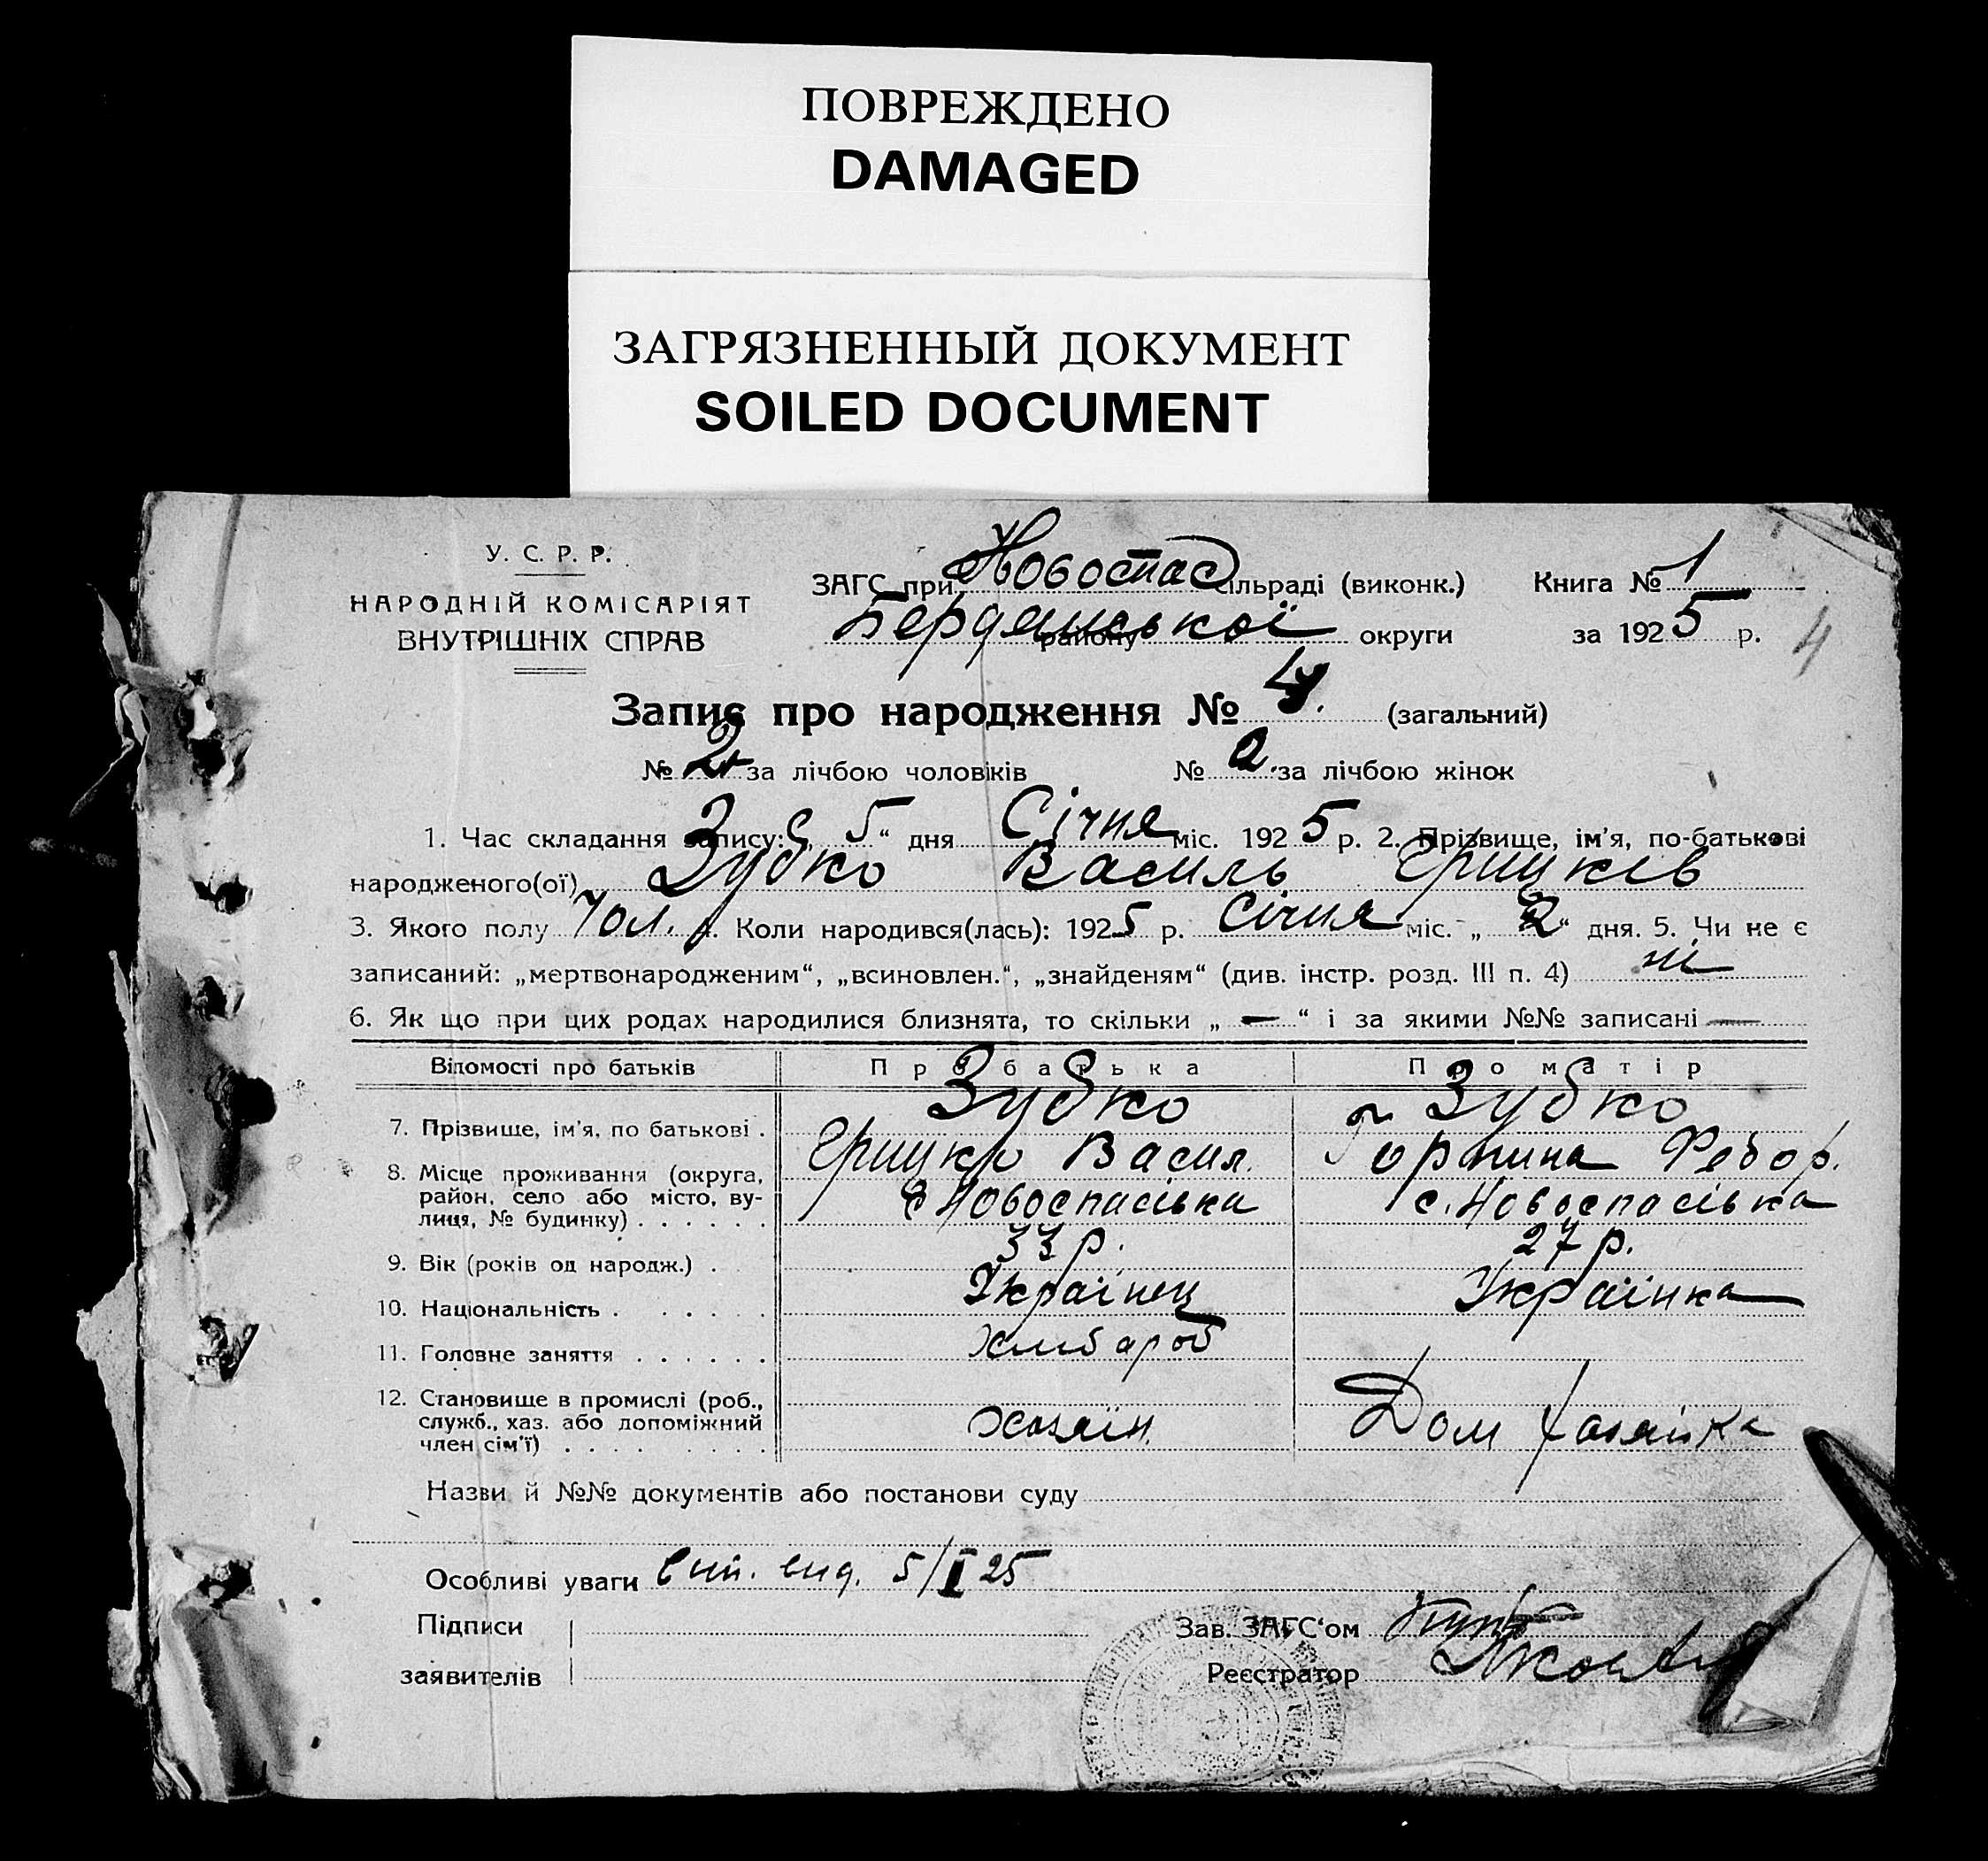 ПОВРЕЖДЕНО
DAMAGED
ЗАГРЯЗНЕННЫЙ ДОКУМЕНТ
SOILED DOCUMENT
У. С. Р. Р.
НАРОДНІЙ КОМІСАРІЯТ
ВНУТРІШНІХ СПРАВ
ЗАГС при Новоспас сільраді (виконк.) Книга № 1
Бердянської району округи за 1925 р. 4
Запис про народження № 4. (загальний)
№ 2 за лічбою чоловіків № за лічбою жінок
1. Час складання запису: „ 5 “ дня Січня міс. 1925 р. 2. Прізвище, ім'я, по-батькові
народженого(ої) Зубко Василь Грицьків
3. Якого полу Чол. 4. Коли народився(лась): 1925 р. Січня міс. „ 2 “ дня. 5. Чи не є
записаний: „мертвонародженим“, „всиновлен.“, „знайденям“ (див. інстр. розд. III п. 4) ні
6. Як що при цих родах народилися близнята, то скільки „ — “ і за якими №№ записані —
Відомості про батьків Про батька Про матір
Зубко Зубко
7. Прізвище, ім'я, по батькові . Грицько Васил. Федор.
8. Місце проживання (округа, район, село або місто, вулиця, № будинку) . . . . . . с. Новоспасівка с. Новоспасівка
9. Вік (років од народж.) . 33 р. 27 р.
10. Національність . . . . . Українець Українка
11. Головне заняття . . . . . . Хлібароб
12. Становище в промислі (роб., служб., хаз. або допоміжний член сім'ї) . . . . . . . . . Хазяїн. Дом хазяйка
Назви й №№ документів або постанови суду
Особливі уваги вип. вид. 5/I 25
Підписи
заявителів
Зав. ЗАГС‘ом
Реєстратор